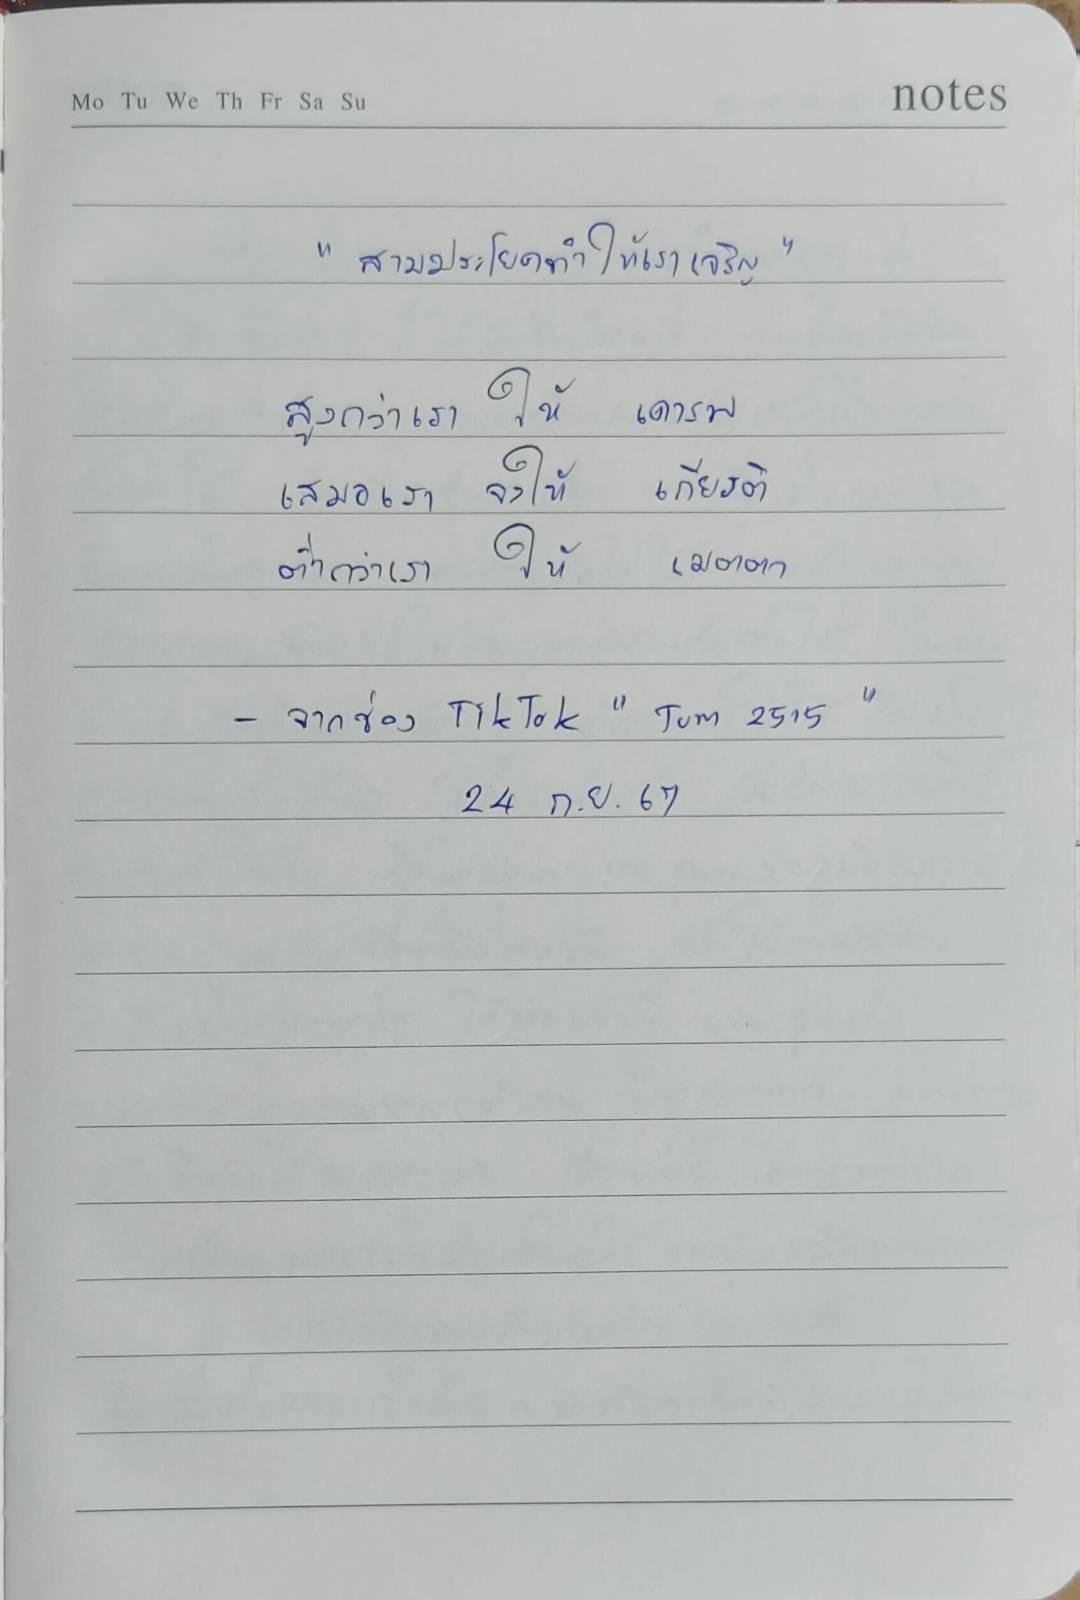 Mo Tu We Th Fr Sa Su notes
" สามประโยคทำให้เราเจริญ "
สูงกว่าเรา ให้ เคารพ
เสมอเรา จงให้ เกียรติ
ต่ำกว่าเรา ให้ เมตตา
- จากช่อง TikTok " Tum 2515 "
24 ก.ย. 67